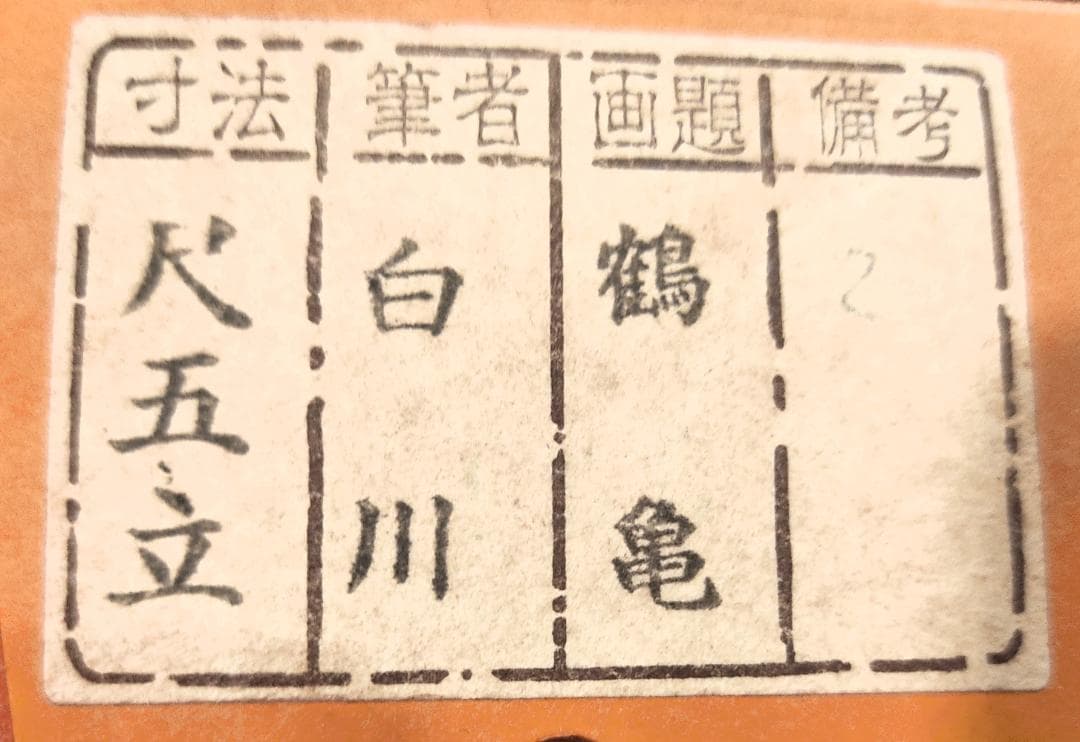 備考
画題
鶴亀
筆者
白川
寸法
尺五立